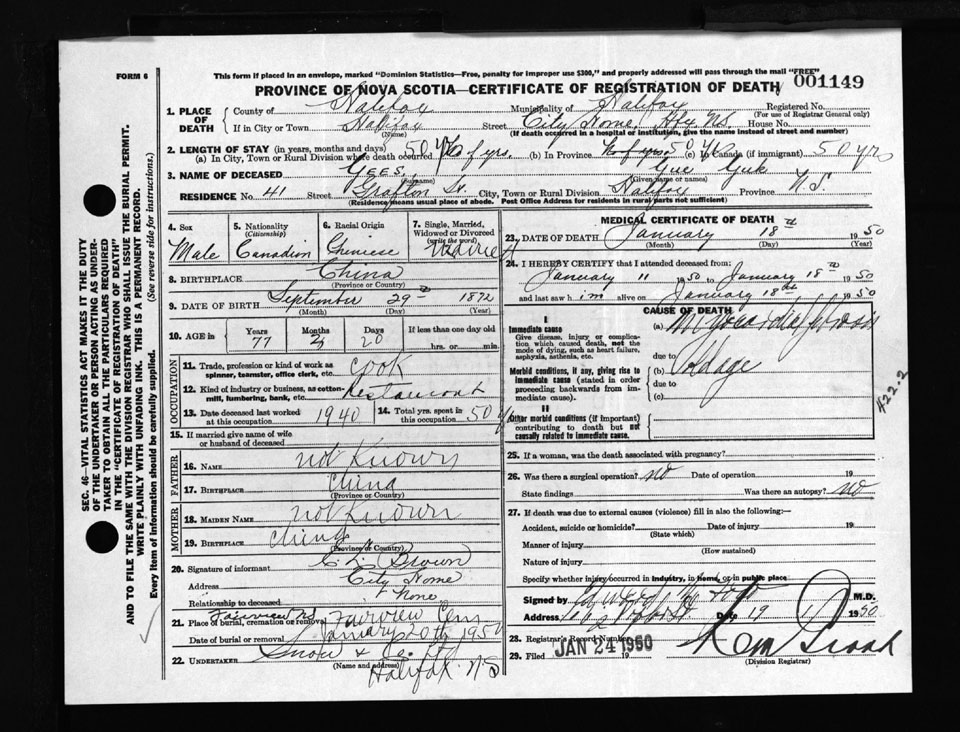 FORM 6
This form if placed in an envelope, marked "Dominion Statistics—Free, penalty for improper use $300," and properly addressed will pass through the mail "FREE"
PROVINCE OF NOVA SCOTIA—CERTIFICATE OF REGISTRATION OF DEATH 001149
1. PLACE OF DEATH County of Halifax Municipality of Halifax Registered No.
(For use of Registrar General only)
If in City or Town Halifax Street City Home, Hfx NS. House No.
(Name) (If death occurred in a hospital or institution, give the name instead of street and number)
2. LENGTH OF STAY (in years, months and days)
(a) In City, Town or Rural Division where death occurred 50 yrs (b) In Province 50 yrs (c) In Canada (if immigrant) 50 yrs
3. NAME OF DECEASED Gees Guk
(Surname) (Given name or names)
RESIDENCE No. 41 Street Grafton St. City, Town or Rural Division Halifax Province N.S.
(Residence means usual place of abode. Post Office Address for residents in rural parts not sufficient)
4. Sex Male
5. Nationality (Citizenship) Canadian
6. Racial Origin Chinese
7. Single, Married, Widowed or Divorced (write the word) Married
8. BIRTHPLACE China
(Province or Country)
9. DATE OF BIRTH September 29th 1872
(Month) (Day) (Year)
10. AGE in Years 77 Months 3 Days 20 If less than one day old hrs. or min.
OCCUPATION
11. Trade, profession or kind of work as spinner, teamster, office clerk, etc. Cook
12. Kind of industry or business, as cotton-mill, lumbering, bank, etc. Restaurant
13. Date deceased last worked at this occupation 1940
14. Total yrs. spent in this occupation 50 yrs
15. If married give name of wife or husband of deceased
FATHER
16. NAME not known
17. BIRTHPLACE China
(Province or Country)
MOTHER
18. MAIDEN NAME not known
19. BIRTHPLACE China
(Province or Country)
20. Signature of informant Brown
Address City Home
Relationship to deceased None
21. Place of burial, cremation or removal Fairview NS Fairview Cem
Date of burial or removal January 20th 1950
22. UNDERTAKER Snow & Co Ltd
(Name and address) Halifax N.S
MEDICAL CERTIFICATE OF DEATH
23. DATE OF DEATH January 18th 1950
(Month) (Day)
24. I HEREBY CERTIFY that I attended deceased from:
January 11 1950 to January 18th 1950
and last saw him alive on January 18th 1950
CAUSE OF DEATH
I
Immediate cause
Give disease, injury or complication which caused death, not the mode of dying, such as heart failure, asphyxia, asthenia, etc.
(a)
due to
Morbid conditions, if any, giving rise to immediate cause (stated in order proceeding backwards from immediate cause).
(b) Old age
due to
(c)
II
Other morbid conditions (if important) contributing to death but not causally related to immediate cause.
422.2
25. If a woman, was the death associated with pregnancy?
26. Was there a surgical operation? no Date of operation 19
State findings Was there an autopsy? no
27. If death was due to external causes (violence) fill in also the following:—
Accident, suicide or homicide? Date of injury 19
(State which)
Manner of injury
(How sustained)
Nature of injury
Specify whether injury occurred in industry, in home, or in public place
Signed by M.D.
Address Date 19 1 1950
28. Registrar's Record Number
29. Filed JAN 24 1950 19
(Division Registrar)
SEC. 46—VITAL STATISTICS ACT MAKES IT THE DUTY
OF THE UNDERTAKER OR PERSON ACTING AS UNDER-
TAKER TO OBTAIN ALL THE PARTICULARS REQUIRED
IN THE "CERTIFICATE OF REGISTRATION OF DEATH"
AND TO FILE THE SAME WITH THE DIVISION REGISTRAR WHO SHALL ISSUE THE BURIAL PERMIT.
WRITE PLAINLY WITH UNFADING INK. THIS IS A PERMANENT RECORD.
Every item of information should be carefully supplied. (See reverse side for instructions.)